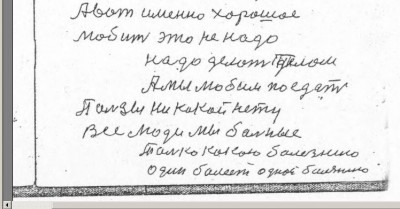 Авот именно хорошое
мобит это не надо
надо делат делом
Амы мобим поедат
Ползы ни какой нету
Все моди мы балные
Толко какою балезнию
Один балеет одной балезнию